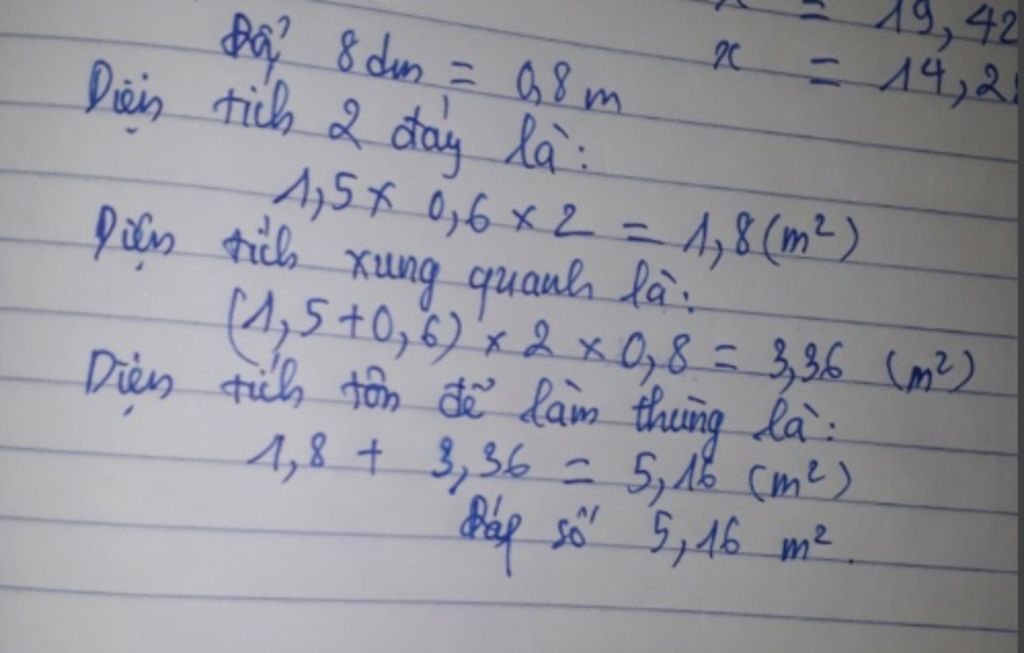 x = 19,42
x = 14,2
Đổi 8dm = 0,8m
Diện tích 2 đáy là:
1,5 x 0,6 x 2 = 1,8 (m²)
Diện tích xung quanh là:
(1,5+0,6) x 2 x 0,8 = 3,36 (m²)
Diện tích tôn để làm thùng là:
1,8 + 3,36 = 5,16 (m²)
Đáp số 5,16 m².